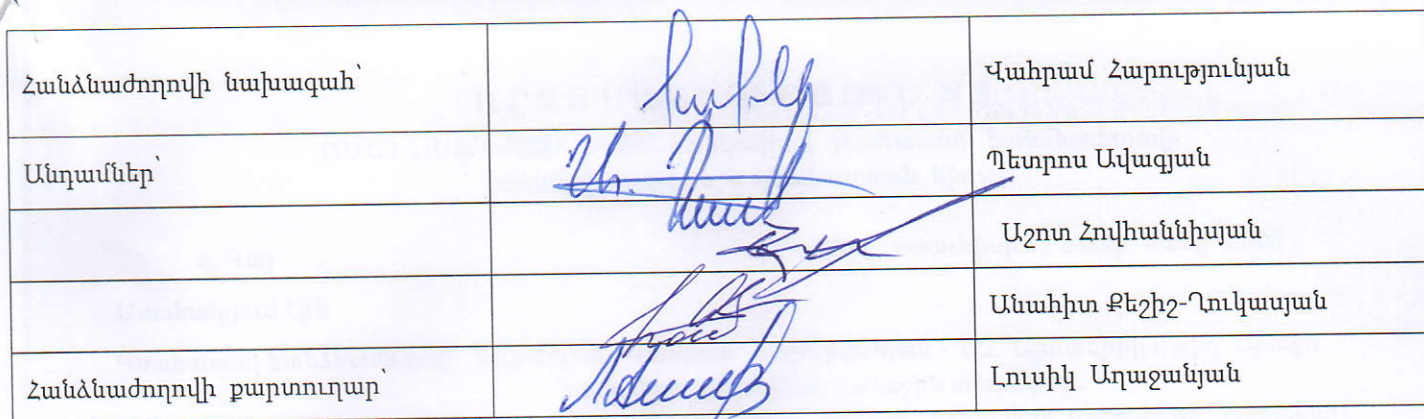 Հանձնաժողովի նախագահ՝
Վահրամ Հարությունյան
Անդամներ՝
Պետրոս Ավագյան
Աշոտ Հովհաննիսյան
Անահիտ Քեշիշ-Ղուկասյան
Հանձնաժողովի քարտուղար՝
Լուսիկ Աղաջանյան